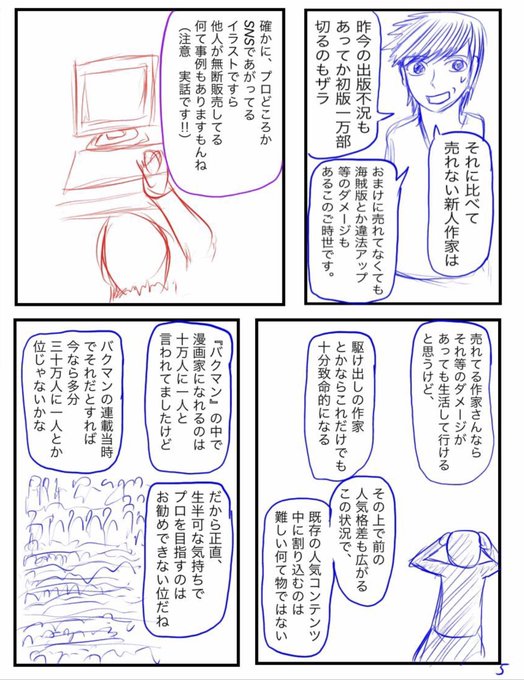 それに比べて
売れない新人作家は
昨今の出版不況も
あってか初版一万部
切るのもザラ
おまけに売れてなくても
海賊版とか違法アップ
等のダメージも
あるこのご時世です。
確かに、プロどころか
SNSであがってる
イラストですら
他人が無断販売してる
何て事例もありますもんね
(注意　実話です!!)
売れてる作家さんなら
それ等のダメージが
あっても生活して行ける
と思うけど、
駆け出しの作家
とかならこれだけでも
十分致命的になる
その上で前の
人気格差も広がる
この状況で、
既存の人気コンテンツ
中に割り込むのは
難しい何て物ではない
『バクマン』の中で
漫画家になれるのは
十万人に一人と
言われてましたけど
バクマンの連載当時
でそれだとすれば
今なら多分
三十万人に一人とか
位じゃないかな
だから正直、
生半可な気持ちで
プロを目指すのは
お勧めできない位だね
5